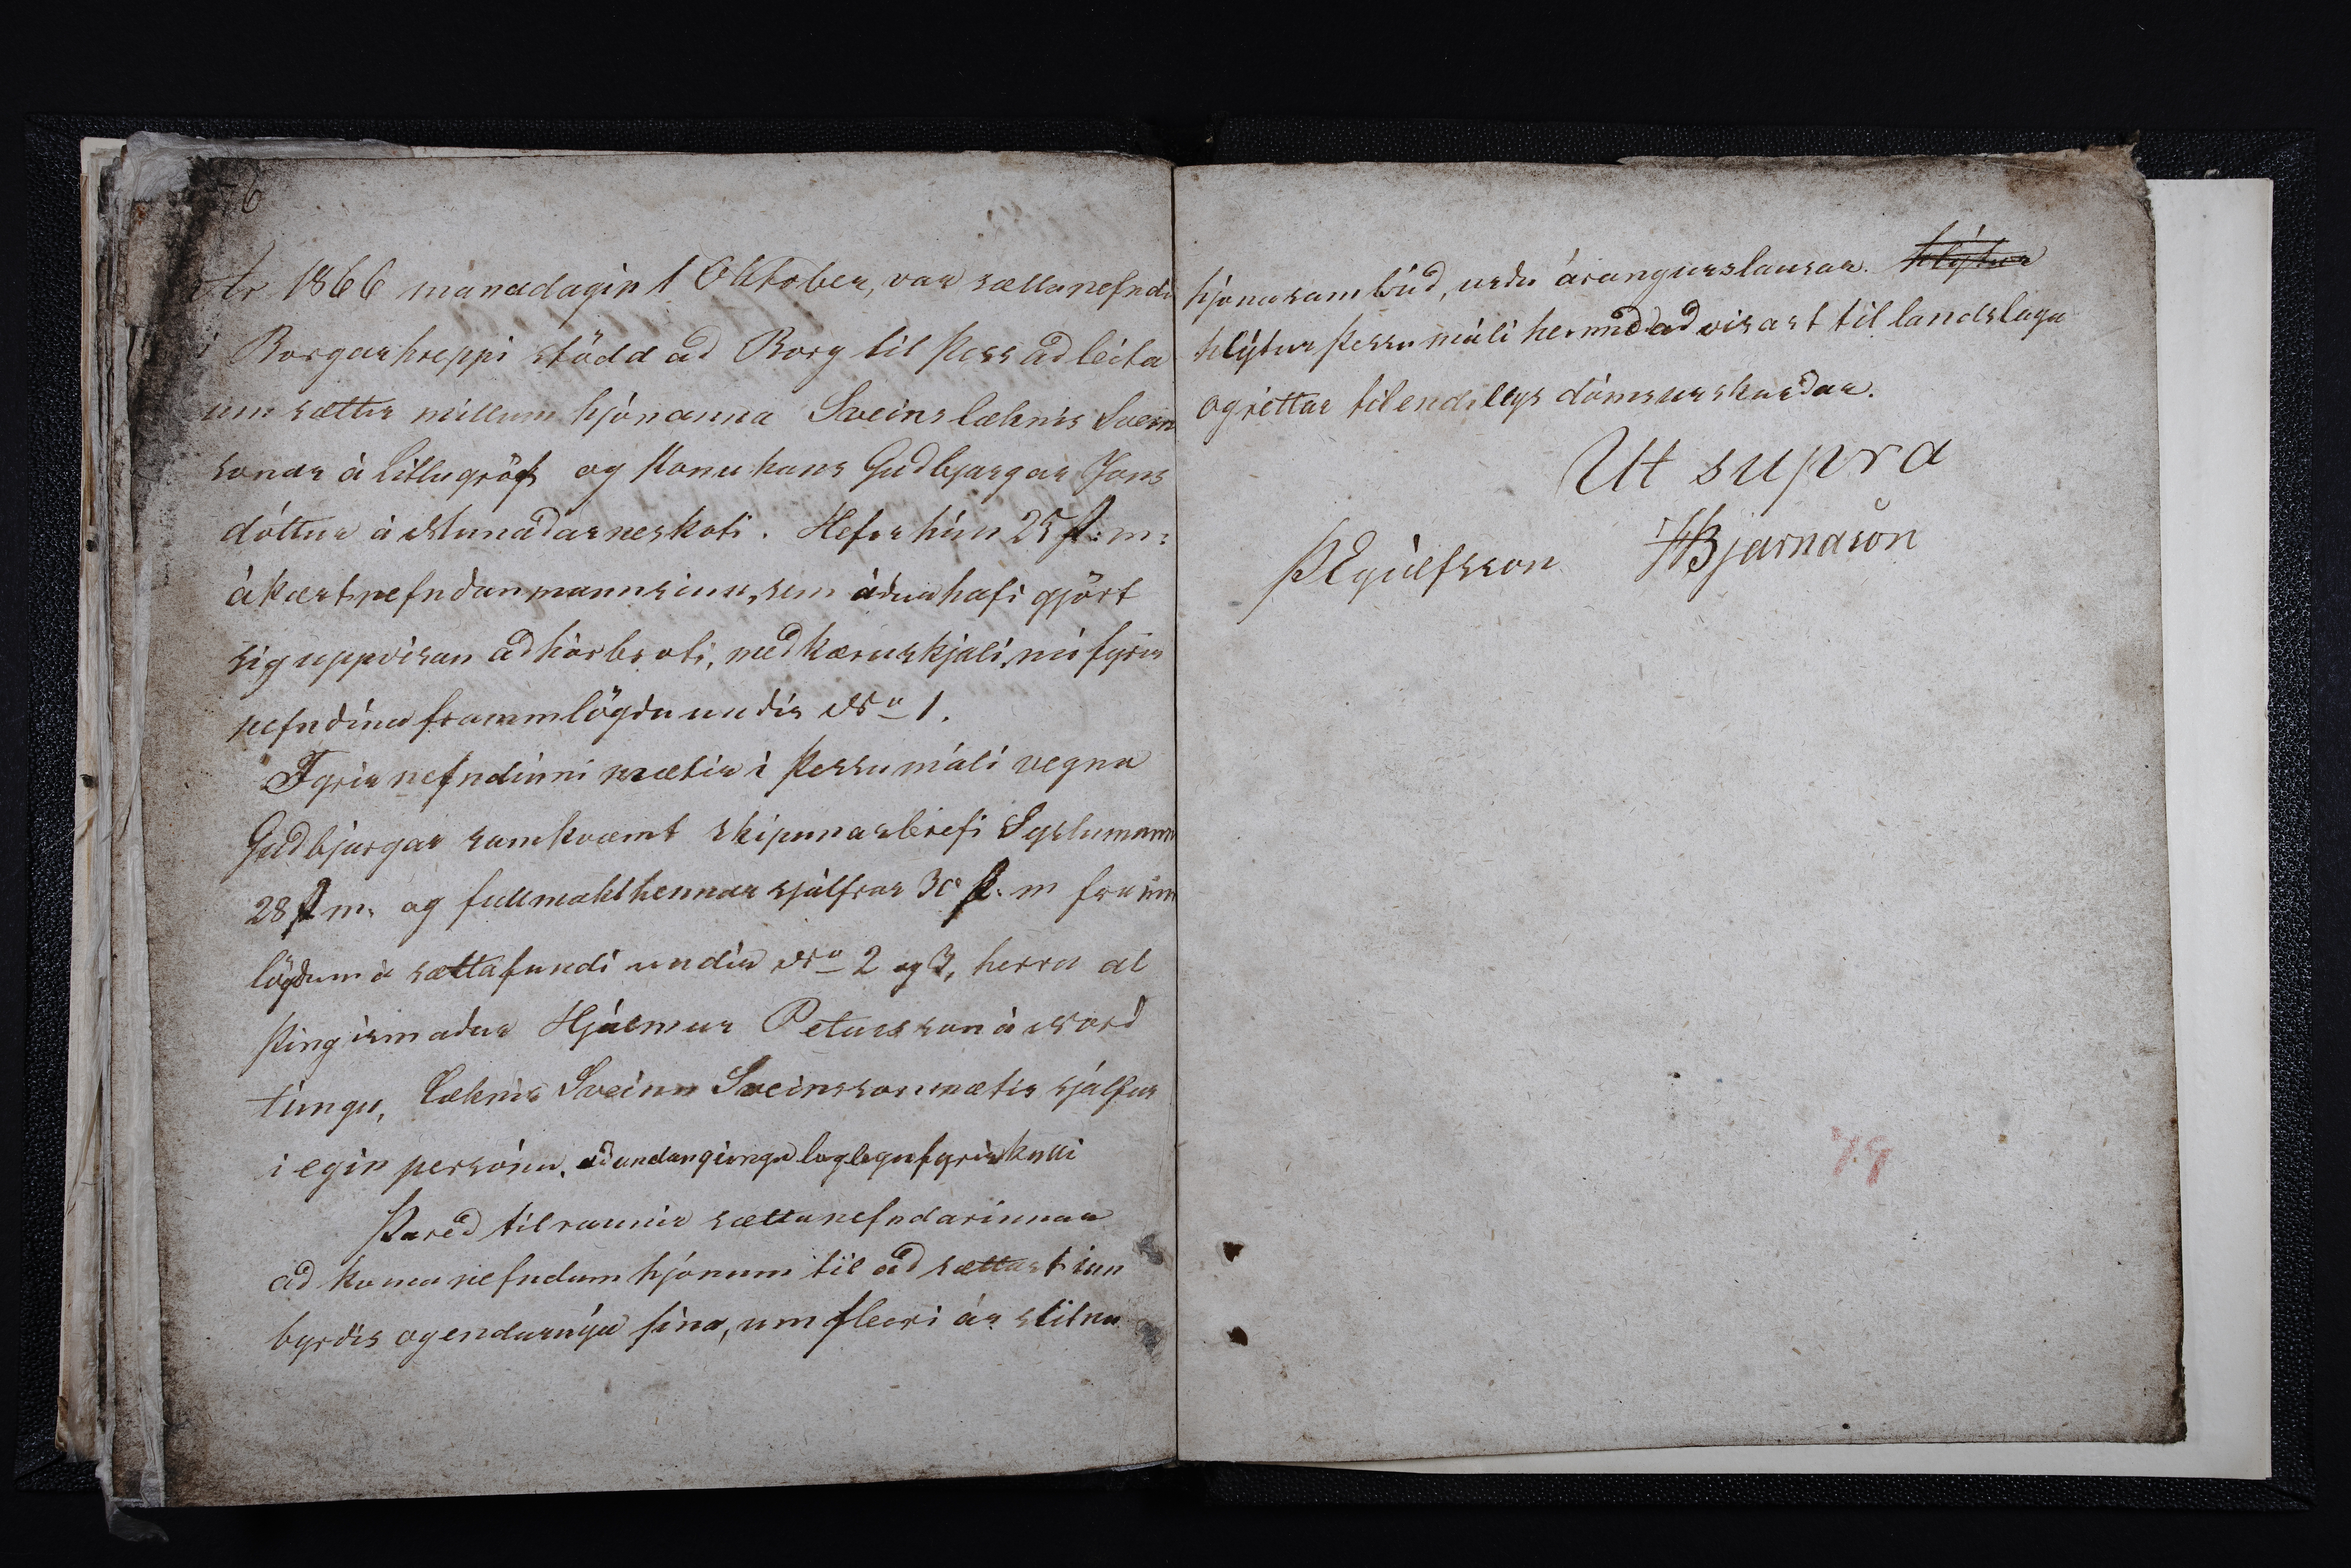 76
Ár 1866 mánadagin 1 Oktober, var sættanefndin
í Borgarhreppi stödd ad Borg til þess ad leita
um sættir millum hjónanna Sveins læknis Svein
sonar á litlugröf og konu hans Gudbjargar Jons
dóttur á Munadarneskoti. Hefir hún 25 f: m:
ákært nefndan mann sinn, sem ádur hafi gjört
sig uppvisan ad hórbroti, med kæruskjali, nú fyrir
nefndina frammlögdu undir No 1.
Fyrir nefndinni mætir i þessu máli vegna
Gudbjargar samkvæmt skipunarbrefi Syslumanns
28 f m. og fullmakt hennar sjálfrar 30 f. m framm
lögdum á sættafundi undir No 2 og 3, herra al
þingismadur Hjálmur Petursson á Nord
túngu, Læknir Sveinn Sveinsson mætir sjálfur
i egin persónu, ad undangingnu löglegu fyrirkalli
Þared tilraunir sættanefndarinnar
ad koma nefndum hjónum til ad sættast inn
byrdis og endurnýa sína, um fleiri ár slitnu
hjónasambúd, urdu árangurslausar. hlýtur
hlýtur þessu máli hermed ad visast til landslaga
og rettar til endilegs dómsurskurdar.
Ut supra
ÞEyúlfsson HBjarnason